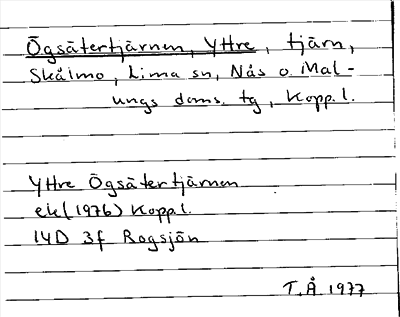 Ögsätertjärnen, Yttre, tjärn,
Skålmo, Lima sn, Nås o. Mal-
ungs doms. tg, Kopp.l.
Yttre Ögsätertjärnen
ek (1976) Kopp.l.
14D 3f Rogsjön
T.Å. 1977